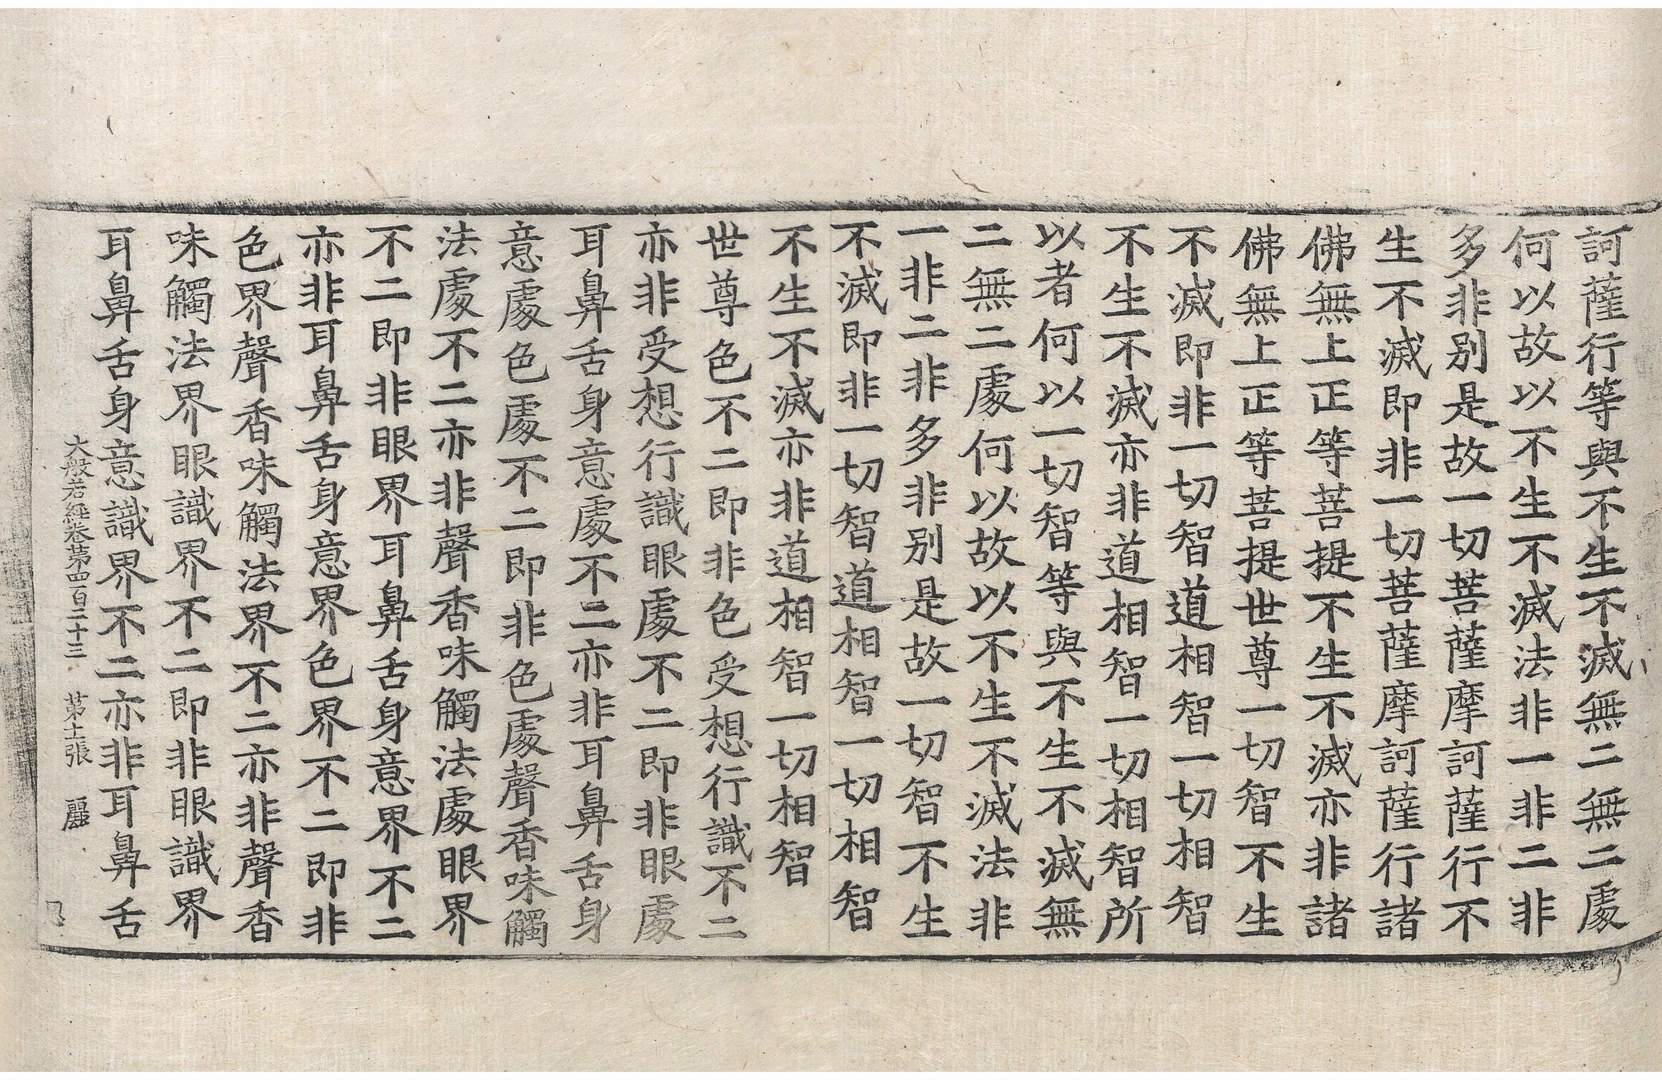 訶薩行等與不生不滅無二無二處
何以故以不生不滅法非一非二非
多非別是故一切菩薩摩訶薩行不
生不滅即非一切菩薩摩訶薩行諸
佛無上正等菩提不生不滅亦非諸
佛無上正等菩提世尊一切智不生
不滅即非一切智道相智一切相智
不生不滅亦非道相智一切相智所
以者何以一切智等與不生不滅無
二無二處何以故以不生不滅法非
一非二非多非別是故一切智不生
不滅即非一切智道相智一切相智
不生不滅亦非道相智一切相智
世尊色不二即非色受想行識不二
亦非受想行識眼處不二即非眼處
耳鼻舌身意處不二亦非耳鼻舌身
意處色處不二即非色處聲香味觸
法處不二亦非聲香味觸法處眼界
不二即非眼界耳鼻舌身意界不二
亦非耳鼻舌身意界色界不二即非
色界聲香味觸法界不二亦非聲香
味觸法界眼識界不二即非眼識界
耳鼻舌身意識界不二亦非耳鼻舌
大般若經卷苐四百二十三 苐十一張 麗